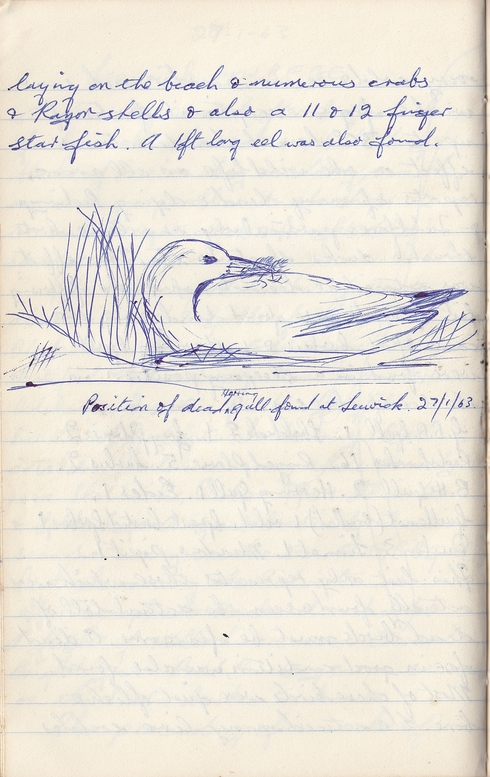 laying on the beach & numerous crabs
& Razor shells & also a 11 & 12 finger
star fish. A 1ft long eel was also found.
Herring
Position of dead gull found at Sewick. 27/1/63